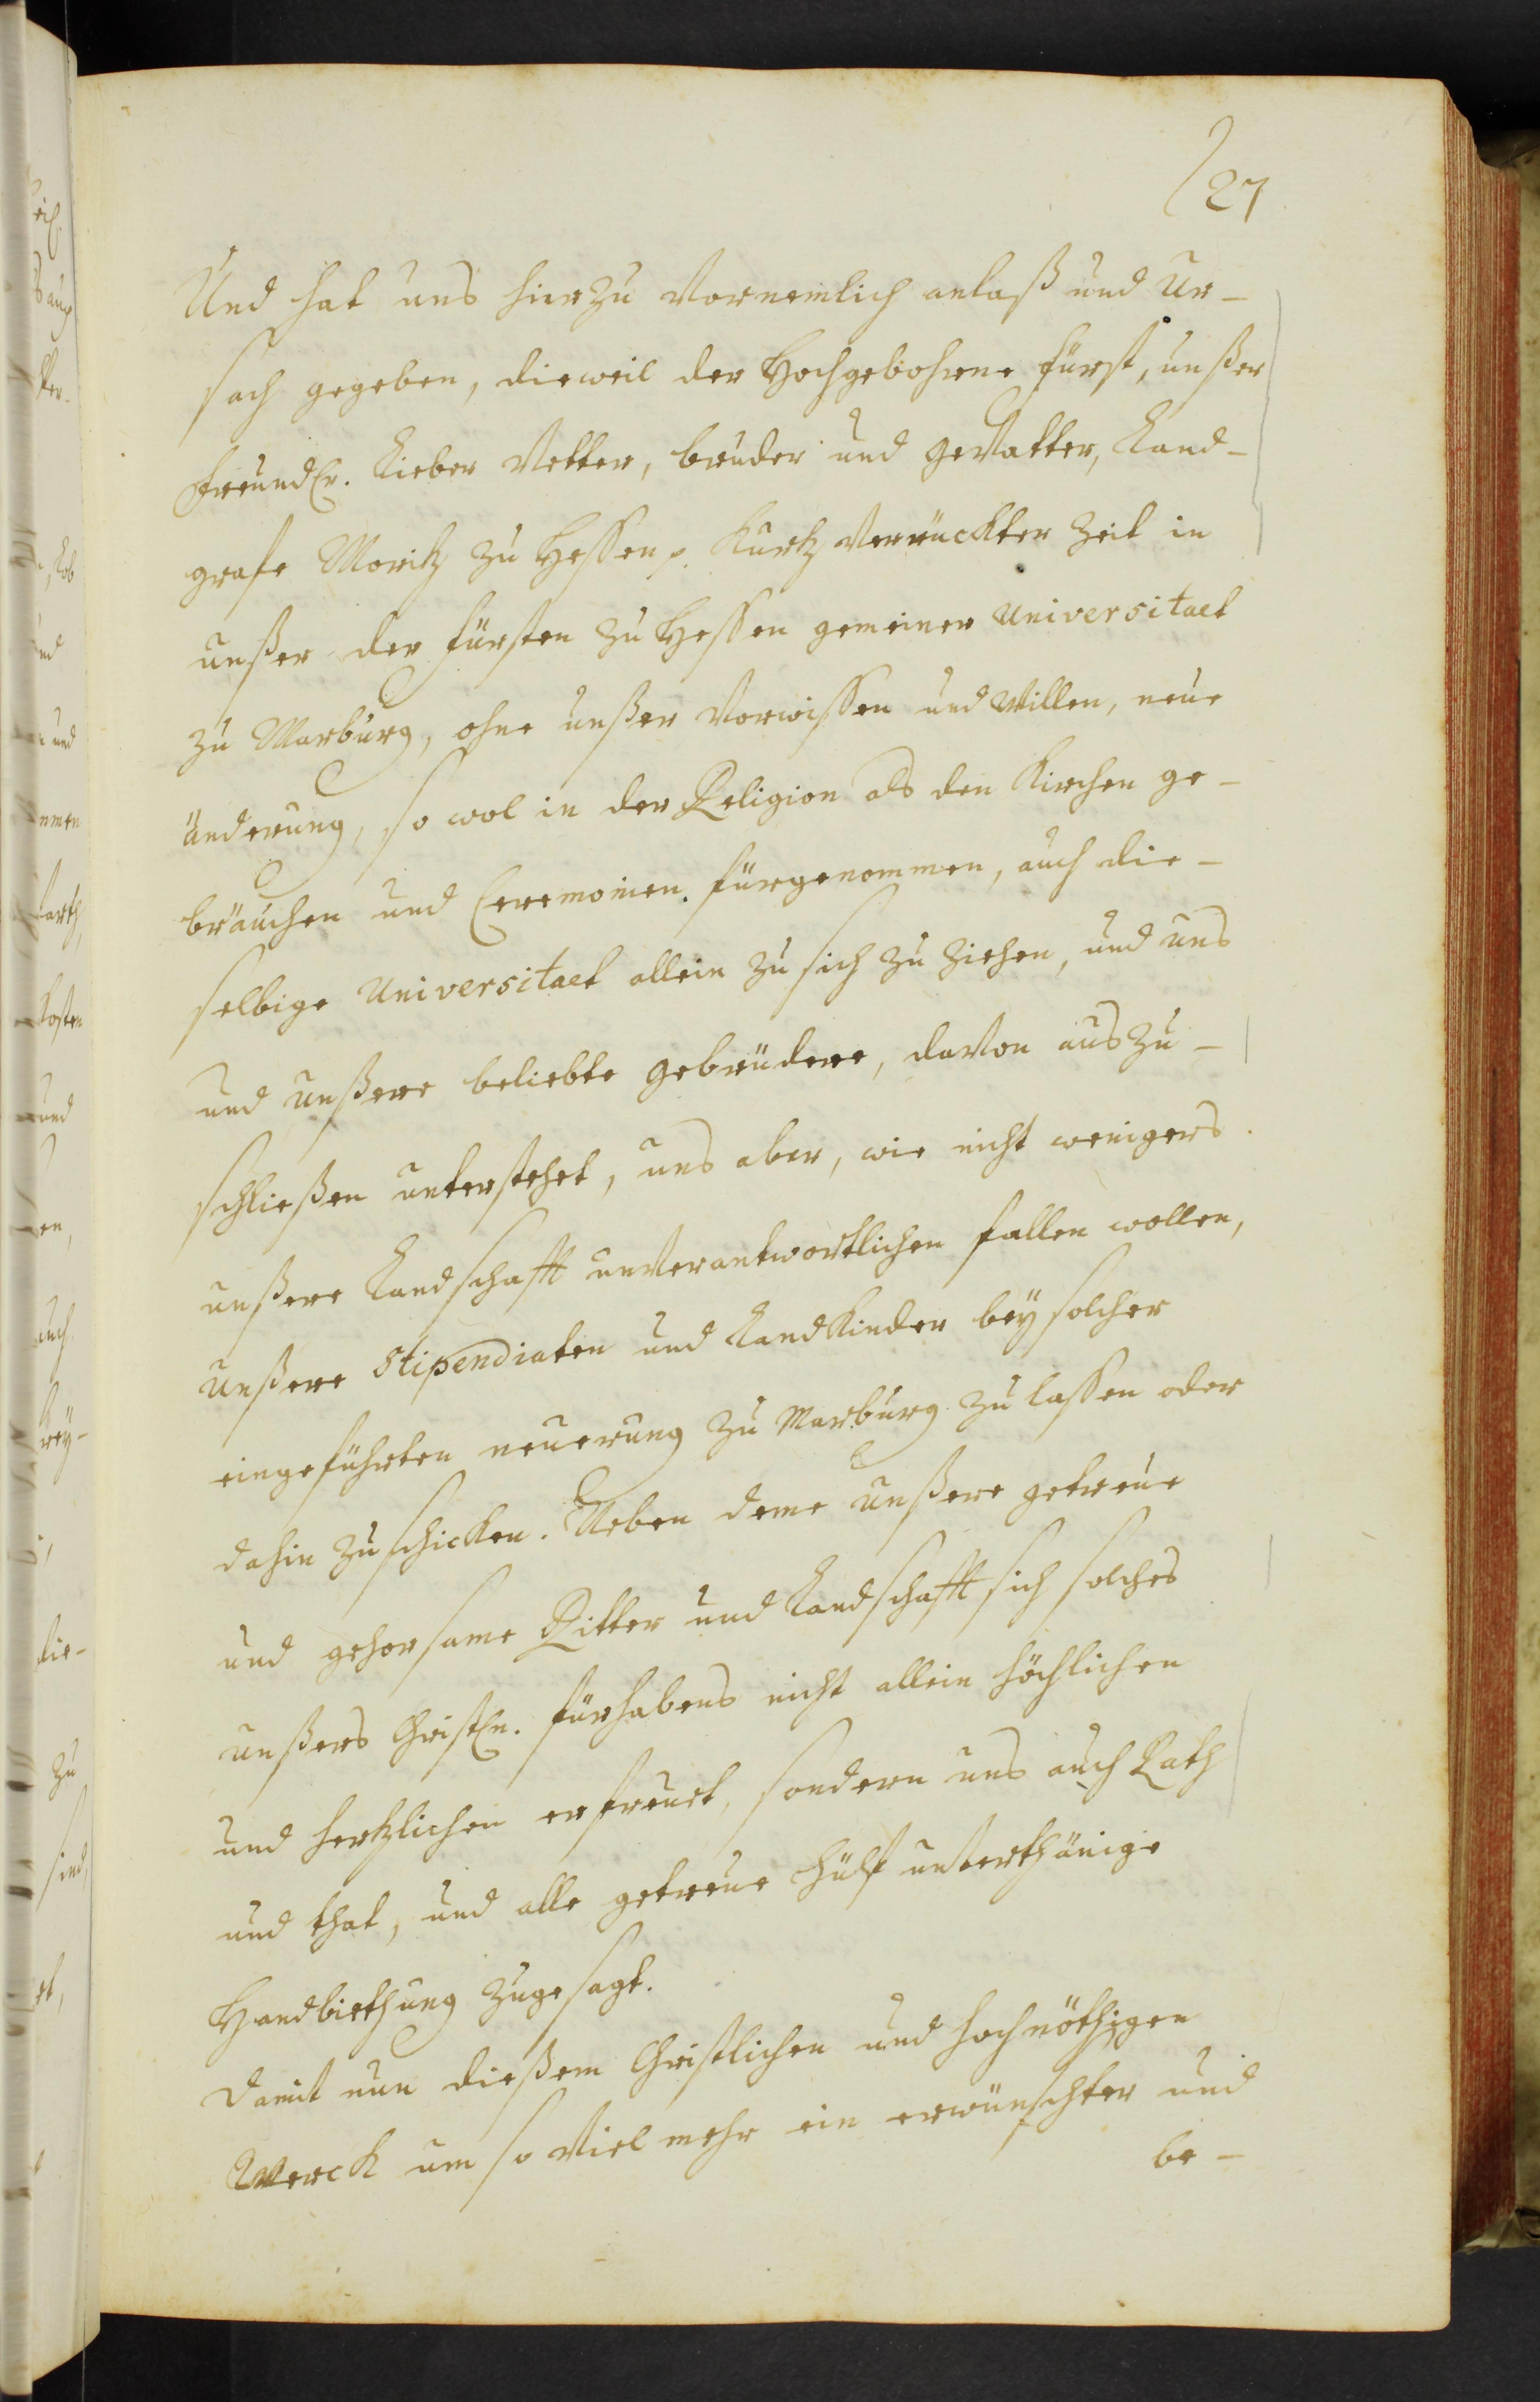 27
Und hat uns hierzu Vornemlich anlaß und Ur-
sach gegeben, dieweil der Hochgebohrne Fürst, unßer
freundlr. Lieber Vetter, bruder und geVatter, Land-
grafe Moritz zu Heßen p. Kurtz Verrückter Zeit in
unßer der Fürsten zu Heßen gemeiner Universitaet
zu Marburg, ohne unßer Vorwißen und Willen, neue
änderung, so wol in der Religion als den Kirchen ge-
bräuchen und Ceremonien fürgenommen, auch die-
selbige Universitaet allein zu sich zu ziehen, und uns
und unßere beliebte gebrüdere, daVon auszu-
schließen unterstehet, uns aber, wie nicht wenigers
unßere Landschafft unVerantwortlichen fallen wollen,
unßere Stipendiaten und LandKinder bey solcher
eingeführten neuerung zu Marburg zu laßen oder
dahin zu schicken. Neben deme unßere getreue
und gehorsame Ritter und Landschafft sich solches
unßers Christln. fürhabens nicht allein höchlichen
und hertzlichen erfreuet, sondern uns auch Rath
und that, und alle getreue hülf unterthänige
Handbiethung zugesagt.
Damit nun dießem Christlichen und hochnöthigen
Werck um so Viel mehr ein erwünschter und
be-